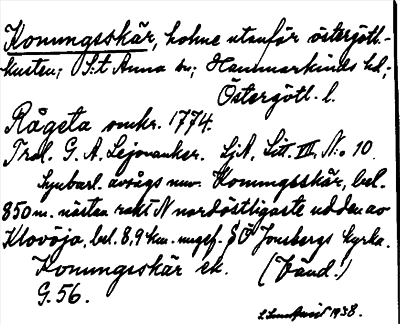 Konungsskär, holme utanför östergötl.-
kusten; S:t Anna sn; Hammarkinds hd;
Östergötl. l.
Rågeta omkr. 1774.
Trol. G. A. Lejonanker. SjA, Litt. III, N:o 10.
Synbarl. avsågs nuv. Konungsskär, bel.
850 m. nästan rakt N nordöstligaste udden av
Klovöja, bel. 8,9 km. ungef. SÖ Jonsbergs kyrka.
Konungsskär ek. (Eänd.)
G. 56.
1938.